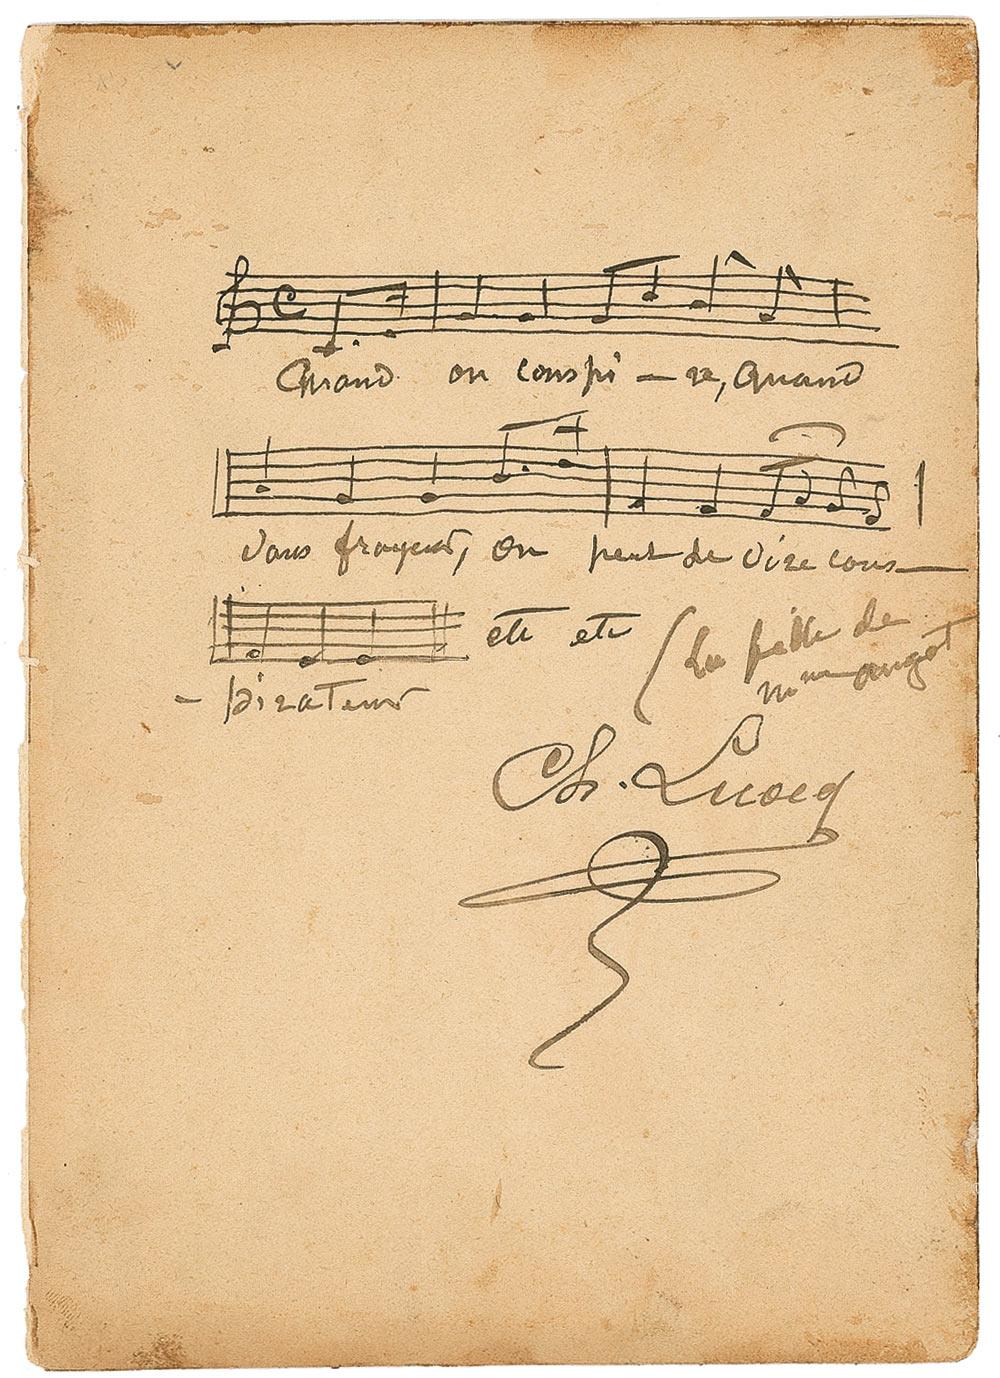 Quand on conspi - re, Quand
sans frayeur, on peut se dire cons-
- pirateur etc etc (La fille de
Mme angot
Ch. Lecocq